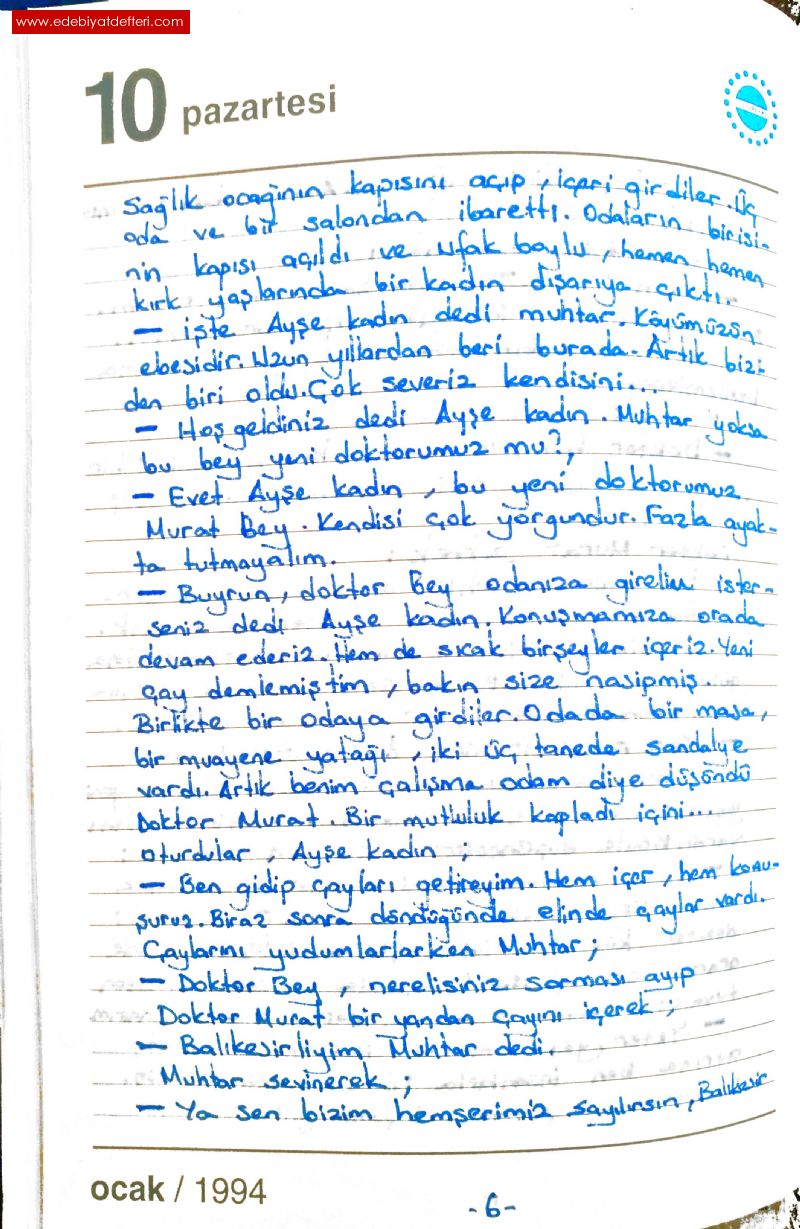 www.edebiyatdefteri.com
10 pazartesi
Sağlık ocağının kapısını açıp, içeri girdiler. Üç
oda ve bir salondan ibaretti. Odaların birisi-
nin kapısı açıldı ve ufak boylu, hemen hemen
kırk yaşlarında bir kadın dışarıya çıktı.
— İşte Ayşe kadın dedi muhtar. Köyümüzün
ebesidir. Uzun yıllardan beri burada. Artık biz-
den biri oldu. Çok severiz kendisini...
— Hoş geldiniz dedi Ayşe kadın. Muhtar yoksa
bu bey yeni doktorumuz mu?,
— Evet Ayşe kadın, bu yeni doktorumuz
Murat Bey. Kendisi çok yorgundur. Fazla ayak-
ta tutmayalım.
— Buyrun, doktor Bey odanıza girelim ister-
seniz dedi Ayşe kadın. Konuşmamıza orada
devam ederiz. Hem de sıcak birşeyler içeriz. Yeni
çay demlemiştim, bakın size nasipmiş.
Birlikte bir odaya girdiler. Odada bir masa,
bir muayene yatağı, iki üç tanede sandalye
vardı. Artık benim çalışma odam diye düşündü
Doktor Murat. Bir mutluluk kapladı içini...
Oturdular, Ayşe kadın ;
— Ben gidip çayları getireyim. Hem içer, hem konu-
şuruz. Biraz sonra döndüğünde elinde çaylar vardı.
Çaylarını yudumlarlarken Muhtar ;
— Doktor Bey, nerelisiniz sorması ayıp
Doktor Murat bir yandan çayını içerek ;
— Balıkesirliyim Muhtar dedi.
Muhtar sevinerek ;
— Ya sen bizim hemşerimiz sayılırsın, Balıkesir
ocak / 1994
-6-